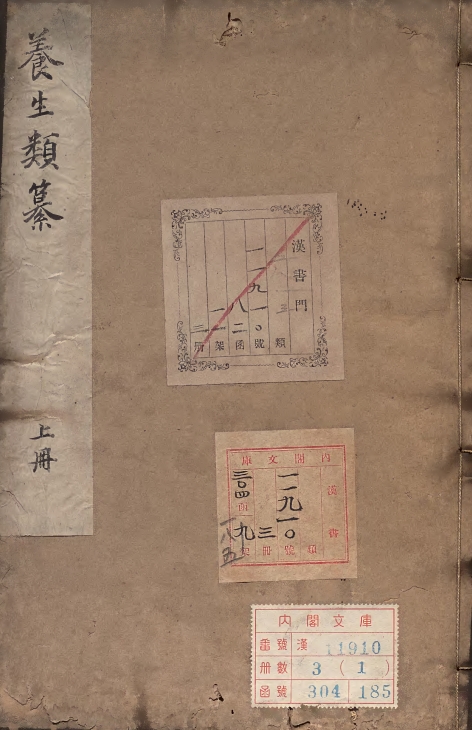 養生類纂
上冊
漢書門
三
類
一一九一〇
號
八二
函
一一
架
三
冊
內閣文庫
漢書
一一九一〇
號
三
冊
三〇四
函
九
架
一八五
內閣文庫
番號 漢 11910
冊數 3 (1)
函號 304 185